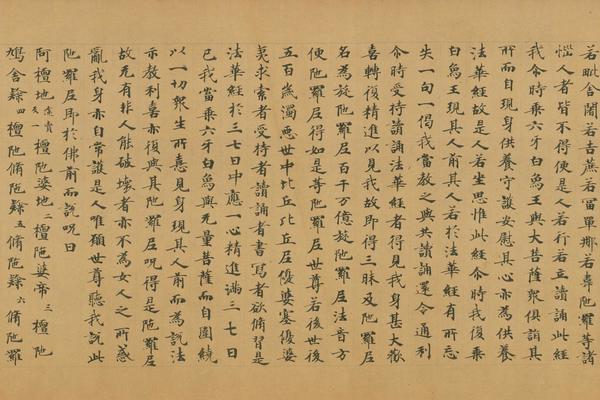 若毗舍闍若吉蔗若富單那若韋陁羅等諸
惱人者皆不得便是人若行若立讀誦此經
我尒時乘六牙白象王與大菩薩眾俱詣其
所而自現身供養守護安慰其心亦為供養
法華經故是人若坐思惟此經尒時我復乘
白象王現其人前其人若於法華經有所忘
失一句一偈我當教之與共讀誦還令通利
尒時受持讀誦法華經者得見我身甚大歡
喜轉復精進以見我故即得三昧及陁羅尼
名為旋陁羅尼百千万億旋陁羅尼法音方
便陁羅尼得如是等陁羅尼世尊若後世後
五百歲濁惡世中比丘比丘尼優婆塞優婆
夷求索者受持者讀誦者書寫者欲脩習是
法華經於三七日中應一心精進滿三七日
已我當乘六牙白象與无量菩薩而自圍繞
以一切眾生所憙見身現其人前而為說法
示教利喜亦復與其陁羅尼呪得是陁羅尼
故无有非人能破壞者亦不為女人之所惑
亂我身亦自常護是人唯願世尊聽我說此
陁羅尼即於佛前而說呪曰
阿檀地途賣反一 檀陁婆地二 檀陁婆帝三 檀陁
鳩舍隸四 檀陁脩陁隸五 脩陁隸六 脩陁羅